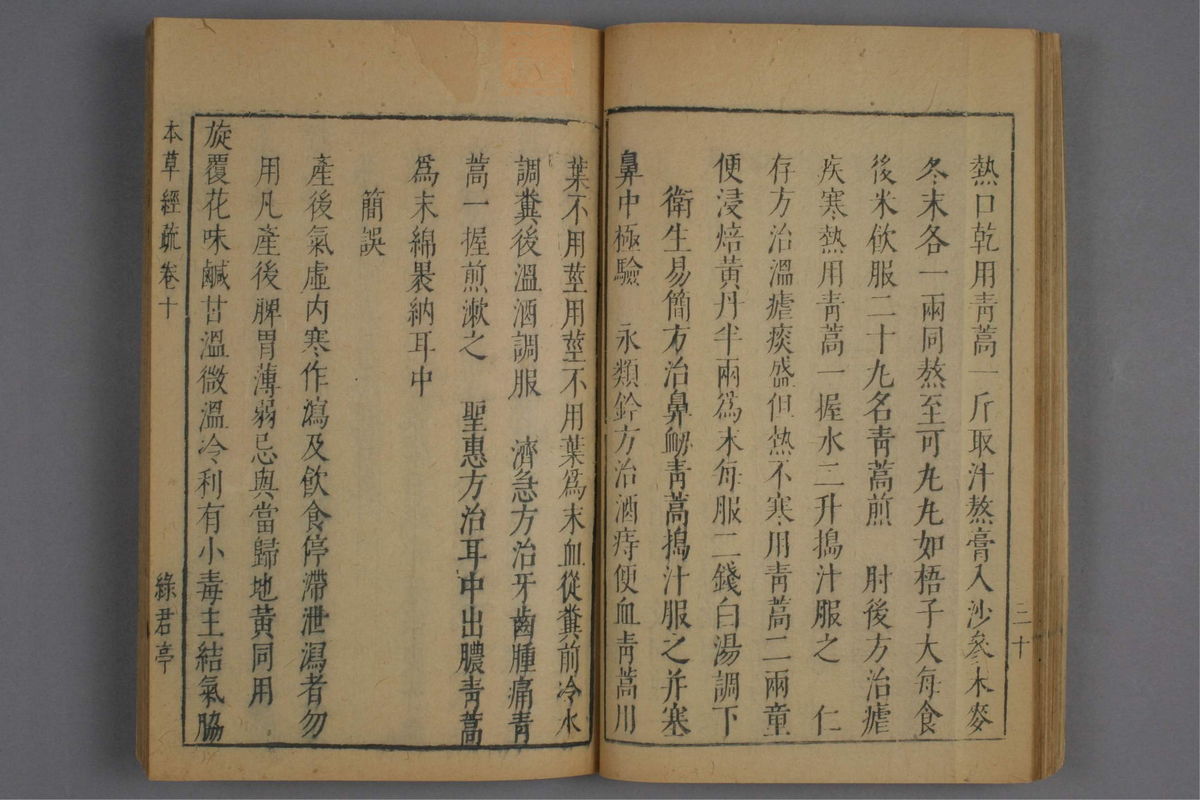 熱口乾用靑蒿一斤取汁熬膏入沙參末麥
冬末各一兩同熬至可丸丸如梧子大每食
後米飲服二十丸名靑蒿煎　肘後方治瘧
疾寒熱用靑蒿一握水二升搗汁服之　仁
存方治溫瘧痰盛但熱不寒用靑蒿二兩童
便浸焙黃丹半兩爲末每服二錢白湯調下
衛生易簡方治鼻衂靑蒿搗汁服之并塞
鼻中極驗　永類鈐方治酒痔便血靑蒿用
二十
葉不用莖用莖不用葉爲末血從糞前冷水
調糞後溫酒調服　濟急方治牙齒腫痛靑
蒿一握煎漱之　聖惠方治耳中出膿靑蒿
爲末綿裹納耳中
簡誤
產後氣虛内寒作瀉及飲食停滯泄瀉者勿
用凡產後脾胃薄弱忌與當歸地黃同用
旋覆花味鹹甘溫微溫冷利有小毒主結氣脇
本草經疏卷十
綠君亭